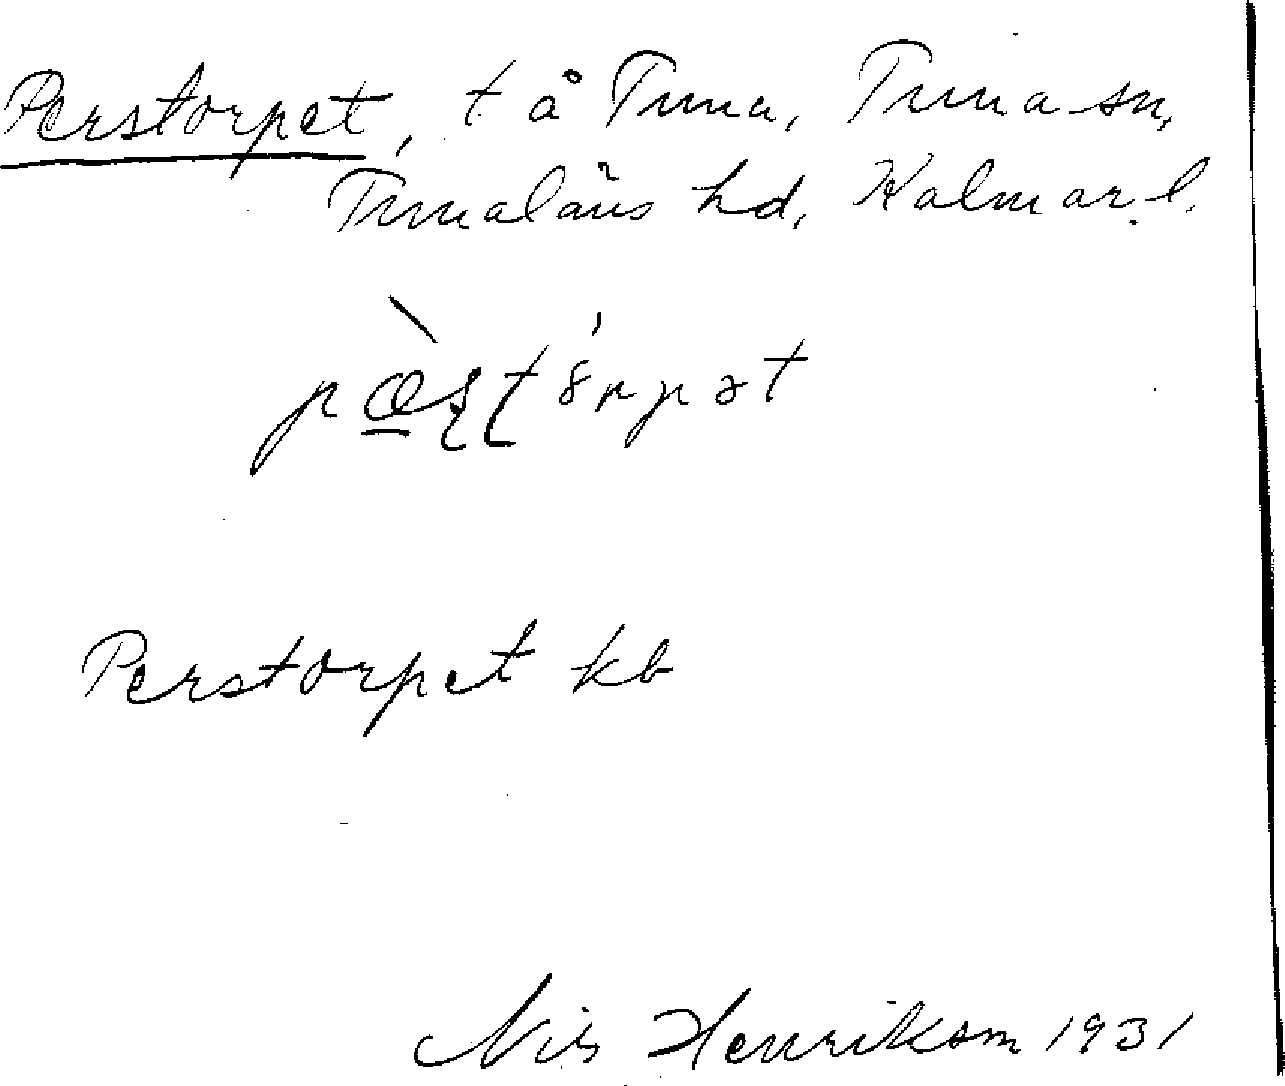 Perstorpet, t å Tuna, Tuna sn,
Tunaläns hd, Kalmar l.
Perstorpet kb
Nils Henrikson 1931